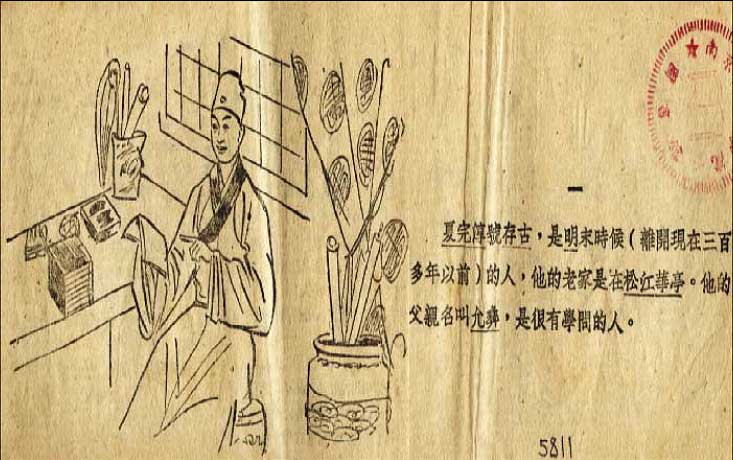 一
夏完淳號存古，是明末時候（離開現在三百
多年以前）的人，他的老家是在松江華亭。他的
父親名叫允彝，是很有學問的人。
5811